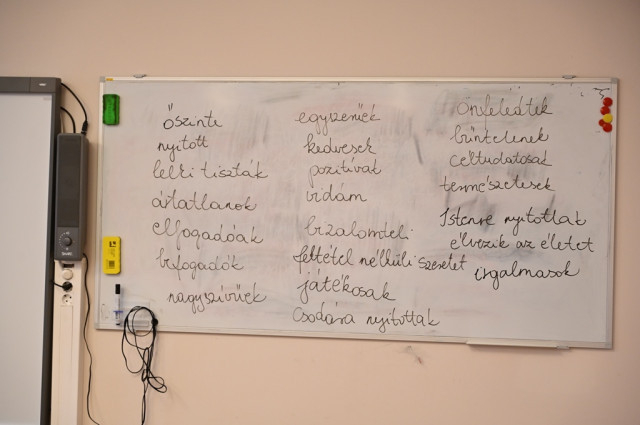 őszinte
nyitott
lelki tiszták
ártatlanok
elfogadóak
befogadók
nagyszívűek
egyszerűek
kedvesek
pozitívak
vidám
bizalomteli
feltétel nélküli szeretet
játékosak
csodára nyitottak
önfeledtek
bűntelenek
céltudatosak
természetesek
Istenre nyitottak
élvezik az életet
irgalmasok